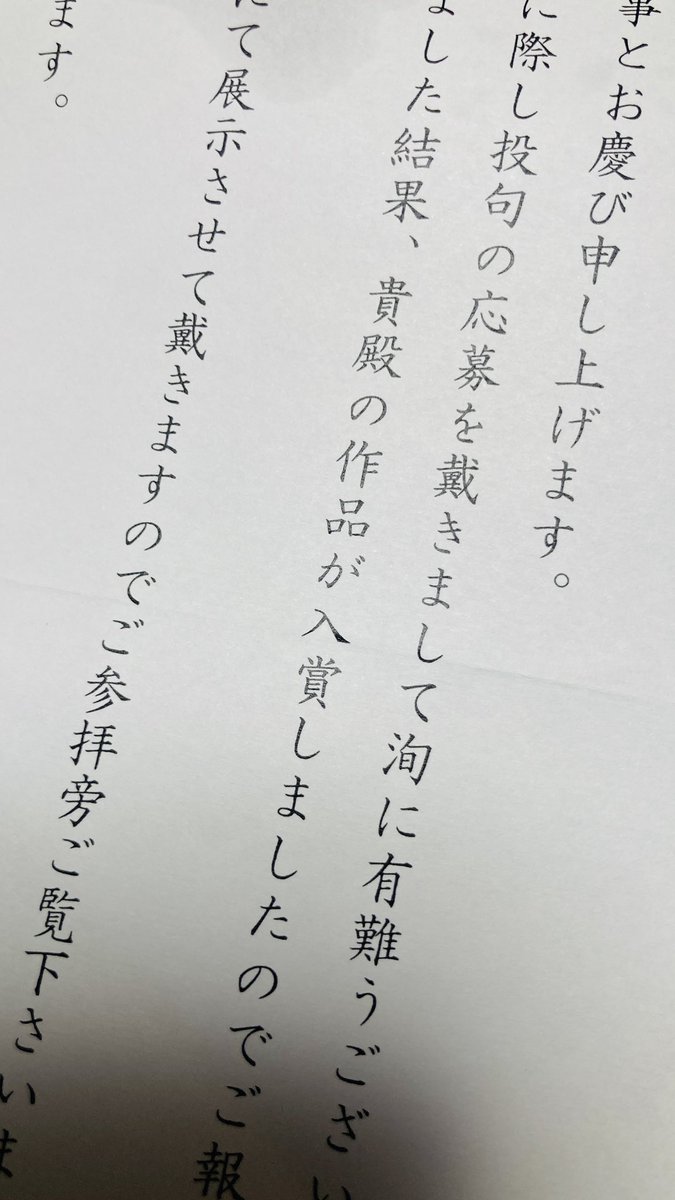 事とお慶び申し上げます。
に際し投句の応募を戴きまして洵に有難うござい
ました結果、貴殿の作品が入賞しましたのでご報
にて展示させて戴きますのでご参拝旁ご覧下さいま
ます。